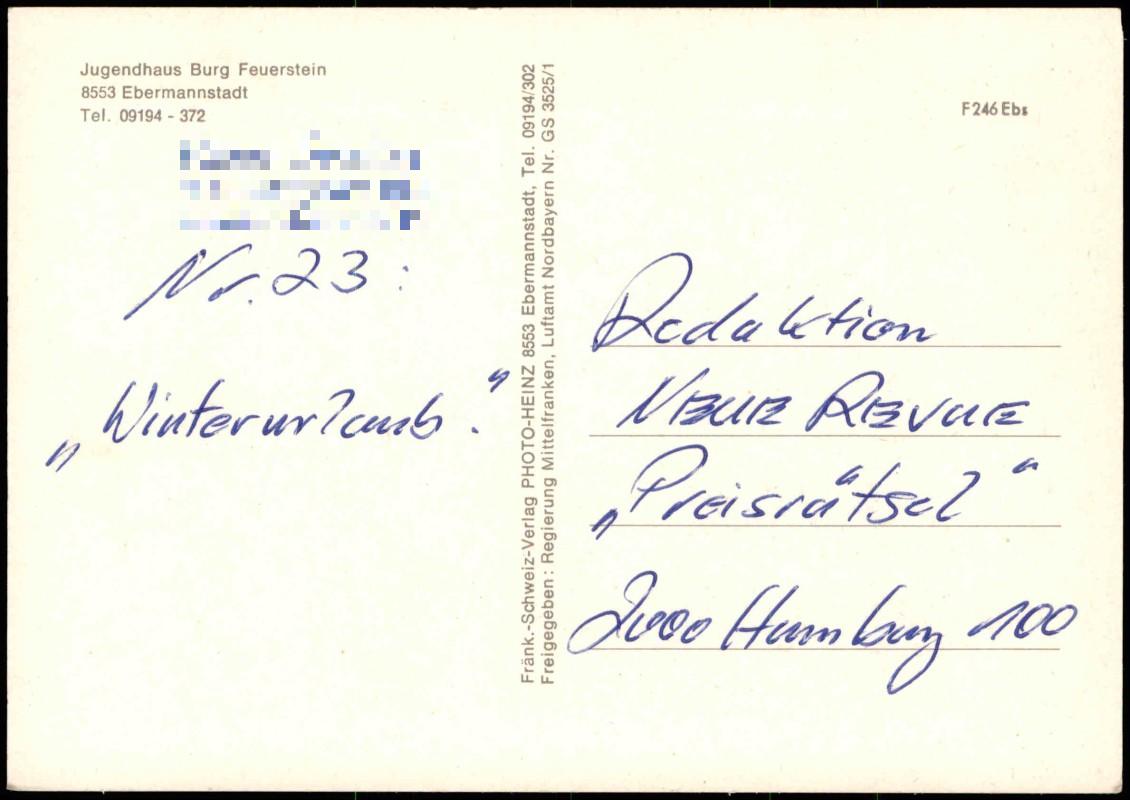 Jugendhaus Burg Feuerstein
8553 Ebermannstadt
Tel. 09194 - 372
Nr. 23:
„Winterurlaub."
Fränk.-Schweiz-Verlag PHOTO-HEINZ 8553 Ebermannstadt, Tel. 09194/302
Freigegeben: Regierung Mittelfranken, Luftamt Nordbayern Nr. GS 3525/1
F 246 Ebs
Redaktion
NEUE REVUE
„Preisrätsel"
2000 Hamburg 100